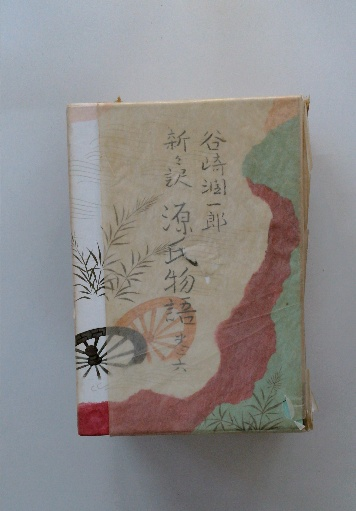 谷崎潤一郎
新々訳
源氏物語
巻六